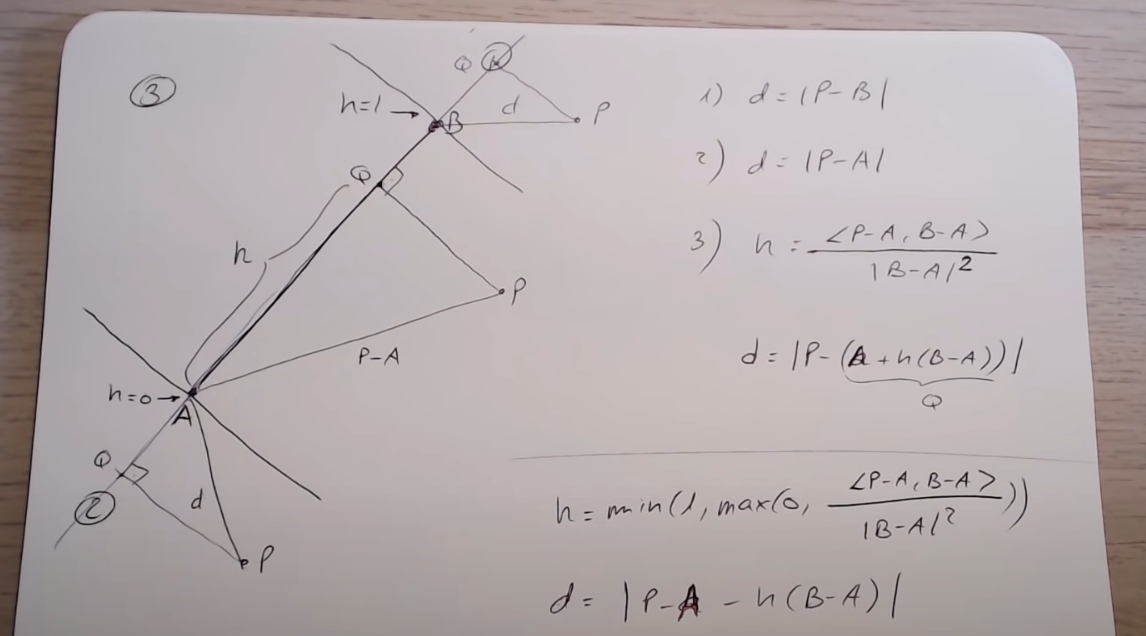 ③
Q ①
h=1 → B d P
Q
h
P
P-A
h=0 → A
Q
② d
P
1) d = |P-B|
2) d = |P-A|
3) h = <P-A, B-A> / |B-A|²
d = |P-(A + h(B-A))|
Q
h = min(1, max(0, <P-A, B-A> / |B-A|²))
d = |P-A - h(B-A)|